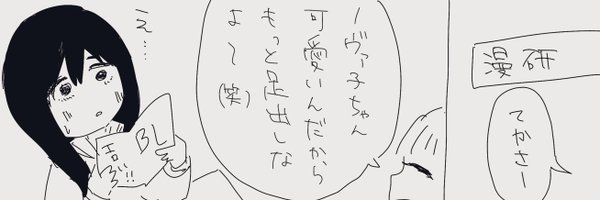 漫研
てかさー
ノヴァ子ちゃん
可愛いんだから
もっと足出しな
よ〜(笑)
え…
BL